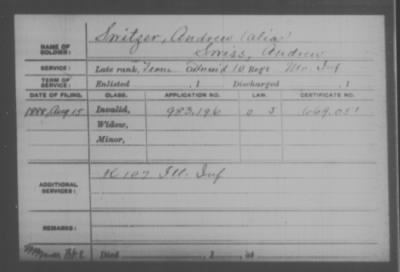 NAME OF SOLDIER: Switzer, Andrew (alias)
Swiss, Andrew
SERVICE: Late rank, Regt Inf
TERM OF SERVICE: Enlisted , 1 Discharged , 1
DATE OF FILING. CLASS. APPLICATION NO. LAW. CERTIFICATE NO.
1888, Aug 15 Invalid, 983.196 669.051
Widow,
Minor,
ADDITIONAL SERVICES: K 107 Ill. Inf
REMARKS:
Died , 1 , at